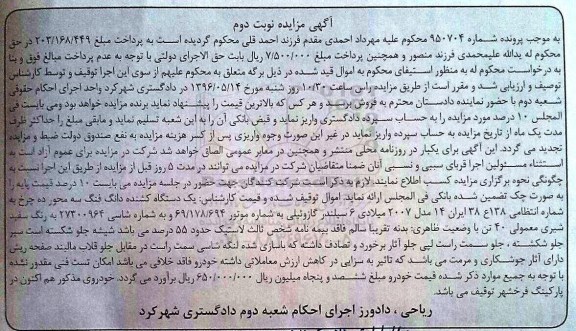 آگهی مزایده نوبت دوم
به موجب پرونده شماره ۹۵۰۷۰۴ محکوم علیه مهرداد احمدی مقدم فرزند احمد قلی محکوم گردیده است به پرداخت مبلغ ۲۰۳/۱۶۸/۴۴۹ در حق
محکوم له یدالله علیمحمدی فرزند منصور و همچنین پرداخت مبلغ ۷/۵۰۰/۰۰۰ ریال بابت حق الاجرای دولتی با توجه به عدم پرداخت مبالغ فوق و بنا
به درخواست محکوم له به منظور استیفای محکوم به اموال قید شده در ذیل برگه متعلق به محکوم علیهم از سوی این اجرا توقیف و توسط کارشناس
توصیف و ارزیابی شد و مقرر است از طریق مزایده راس ساعت ۱۰/۳۰ روز شنبه مورخ ۱۳۹۶/۰۵/۱۴ در دادگستری شهرکرد واحد اجرای احکام حقوقی
شعبه دوم با حضور نماینده دادستان محترم به فروش برسد و هر کس که بالاترین قیمت را پیشنهاد نماید برنده مزایده خواهد بود ومی بایست فی
المجلس ۱۰ درصد مورد مزایده را به حساب سپرده دادگستری واریز نماید و قبض بانکی آن را به این شعبه تسلیم نماید و مابقی مبلغ را حداکثر ظرف
مدت یک ماه از تاریخ مزایده به حساب سپرده واریز نماید در غیر این صورت وجوه واریزی پس از کسر هزینه مزایده به نفع صندوق دولت ضبط و مزایده
تجدید می گردد. این آگهی برای یکبار در روزنامه محلی منتشر و همچنین در معابر عمومی الصاق خواهد شد شرکت در مزایده برای عموم آزاد است به
استثناء مسئولین اجرا قربای سببی و نسبی آنان ضمنا متقاضیان شرکت در مزایده می توانند در مدت ۵ روز قبل از مزایده از طریق این اجرا نسبت به
چگونگی نحوه برگزاری مزایده کسب اطلاع نمایند. لازم به ذکر است شرکت کنندگان جهت حضور در جلسه مزایده می بایست ۱۰ درصد قیمت پایه را
به صورت چک تضمین شده بانکی فی المجلس ارائه نماید. اموال توقیف شده و قیمت کارشناس: یک دستگاه کشنده دانگ فنگ سه محور ده چرخ به
شماره انتظامی ۱۳۸ع۳۸ ایران ۱۴ مدل ۲۰۰۷ میلادی ۶ سیلندر گازوئیلی به شماره موتور ۶۹/۱۷۸/۶۹۴ و به شماره شاسی ۲۷۳۰۰۹۶۴ به رنگ سفید
شیری معمولی ۴۰ تن با وضعیت ظاهری: بدنه تقریبا سالم فاقد بیمه نامه شخص ثالث لاستیک حدود ۵۵ درصد می باشد شیشه جلو شکسته است سپر
جلو شکسته ، جلو سمت راست لپی جلو آثار برخورد و تصادف داشته که بازسازی شده لنگه شاسی سمت راست در مقابل جلو قلاب مالبند صفحه ریش
دارای آثار جوشکاری و مرمت می باشد که تاثیر به سزایی در کاهش ارزش معاملاتی داشته خودرو فاقد خلافی می باشد امکان تست فنی مقدور نشده
با توجه به جمیع موارد ذکر شده قیمت خودرو مبلغ ششصد و پنجاه میلیون ریال ۶۵۰/۰۰۰/۰۰۰ ریال برآورد می گردد. خودروی مذکور هم اکنون در
پارکینگ فرخشهر توقیف می باشد.
ریاحی ، دادورز اجرای احکام شعبه دوم دادگستری شهرکرد